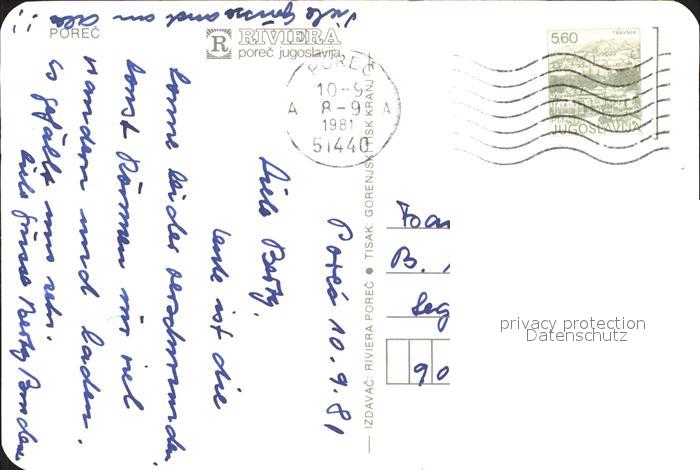 POREČ
R RIVIERA
poreč jugoslavija
POREČ
10-9
A 8-9 A
1981
51440
TRAVNIK
5,60
JUGOSLAVIJA
IZDAVAČ: RIVIERA POREČ ● TISAK: GORENJSKI TISK KRANJ
Poreč 10.9.81
Liebe Betty,
heute ist die
Sonne leider verschwunden.
Sonst können wir viel
wandern und baden.
Es gefällt uns sehr.
Viele Grüsse Betty
Viele Grüsse auch an alle !!
B.
Seg
90
privacy protection
Datenschutz